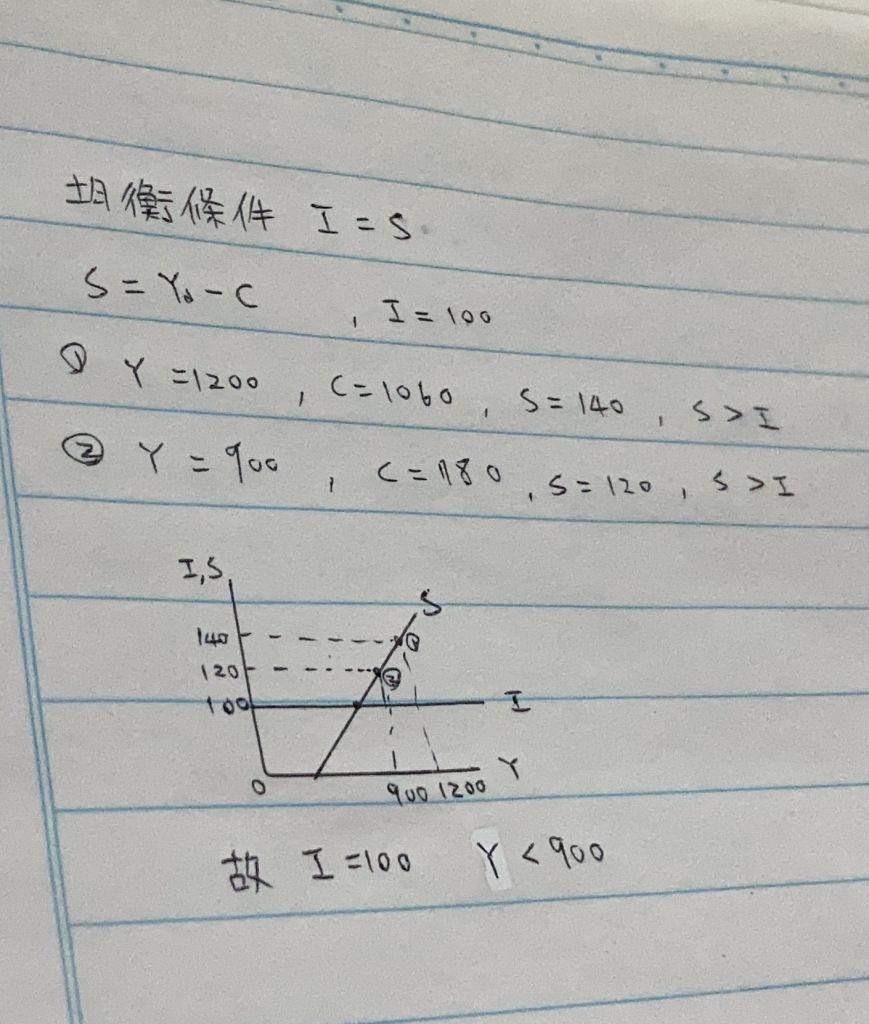 均衡條件 I = S
S = Yd - C , I = 100
① Y = 1200 , C = 1060 , S = 140 , S > I
② Y = 900 , C = 780 , S = 120 , S > I
I,S
S
140 ①
120 ②
100 I
0 900 1200 Y
故 I = 100 Y < 900